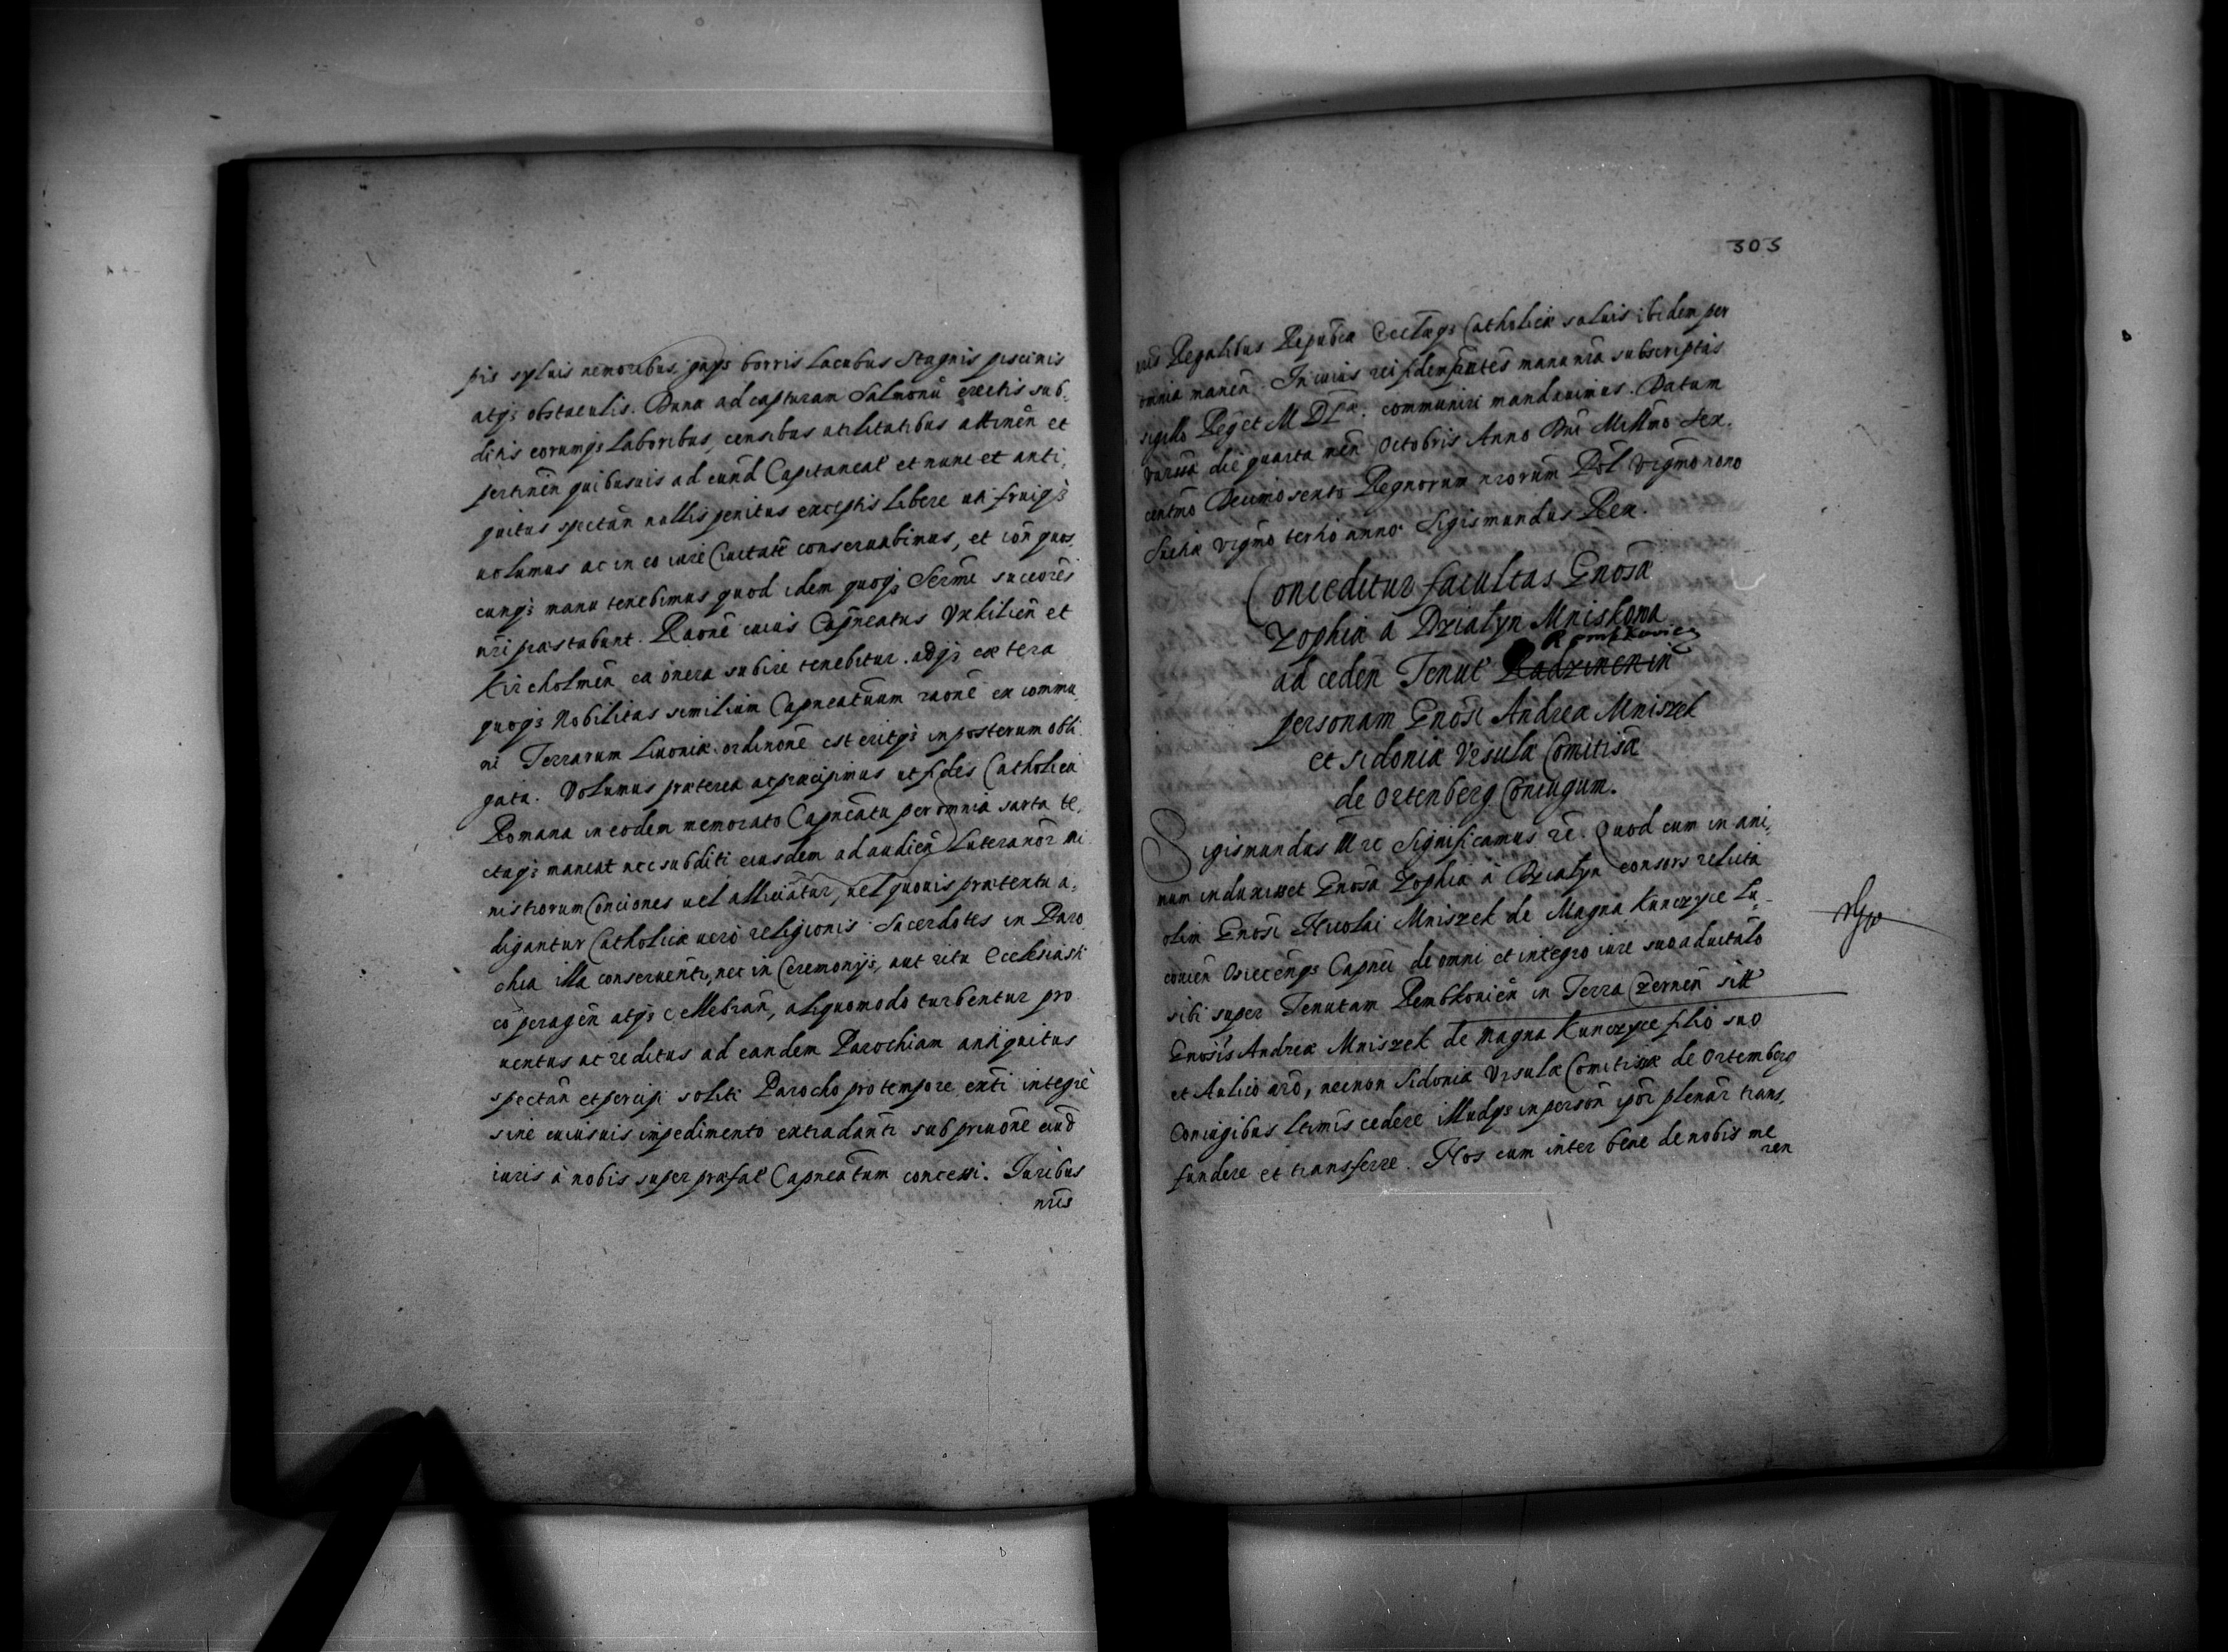 pis syluis nemoribus, gays borris Lacubus Stagnis piscinis
atqз obstaculis. Duna ad capturam Salmonū erectis sub,
ditis eorumqз Laboribus, censibus utilitatibus attinen̄ et
pertinen̄ quibusuis ad eund̄ Capitaneat̄ et nunc et anti,
quitus spectān nullis penitus exceptis Libere uti fruiqз
uolumus ac in eo iure Cuitatē conseruabimus, et
cunqз manu tenebimus quod idem quoqз Serm̄i succorēs
nr̄i præstabunt. Raōne cuius Capneatus Vxkilien̄ et
Kircholmēn ea onera subire tenebitur. adqз cætera
quoqз Nobilitas similium Capneatuum raōne ex commu
ni Terrarum Liuoniæ ordinōne est eritqз in posterum obli
gata. Volumus præterea ac præcipimus ut fides Catholica
Romana in eodem memorato Capneātu per omnia sarta te,
ctaqз maneat nec subditi eiusdem ad audien̄ Luteranōr mi
nistrorum Conciones uel alliciātur, uel quouis prætextu a,
digantur Catholicæ uerò religionis Sacerdotes in Paro
chia illa conseruēntr, nec in Ceremonijs, aut ritu Ecclesiasti
cō peragen̄ atqз cellebrān, aliquomodo turbentur pro
uentus ac reditus ad eandem Parochiam antiquitus
spectān et percipi soliti Parocho pro tempore exn̄ti integrè
sine cuiusuis impedimento extradānti sub priuōne eiusd̄
iuris à nobis super præfat̄ Capneātum concessi. Iuribus
nr̄is
305
nr̄is Regalibus Reipub̄ca Eccl̄æqз Catholicæ saluis ibidem per
omnia manen̄. In cuius rei fidem pn̄tes manu nr̄a subscriptas
sigillo Reg et M D L̄æ. communiri mandauimus. Datum
Varsā die quarta men̄ Octobris Anno Dn̄i Mill̄mo Sex.
centm̄o Decimo sexto Regnorum nr̄orum Pol̄ Vigm̄o nono
Sueciæ vigm̄o tertio anno. Sigismundus Rex.
Conceditur facultas Gnosæ
Zophiæ à Dzialyn Mniskowa
Rembkouien̄
ad ceden̄ Tenut̄ Radzinen in
personam Gnosi Andreæ Mniszek
et Sidoniæ Vrsulæ Comitisæ
de Ortenberg Coniugum.
Sigismundus III rc Significamus rē. Quod cum in ani,
mum induxisset Gnosā Zophia à Dzialyn consors relicta
olim Gnosi Nicolai Mniszek de Magna Kunczyce Lu,
couien̄ Osiecēnqз Capnēi de omni et integro iure suo aduitalo
sibi super Tenutam Rembkouien̄ in Terra Czernen̄ sitt̄
Gnosis Andreæ Mniszek de Magna Kunczyce filio suo
et Aulico nr̄o, necnon Sidoniæ Vrsulæ Comitissæ de Ortemberg
Coniugibus Ltimis cedere illudqз in person̄ ipōr plenār trans,
fundere et transferre. Nos cum inter bene de nobis me
ren